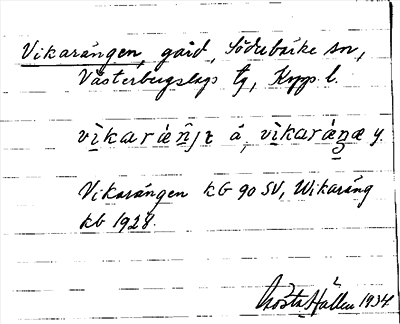 Vikarängen, gård, Söderbärke sn,
Västerbergslags tg, Kopp. l.
vìkaráṉ̃jɛ á, vìkaráŋæ y.
Vikarängen KG 90 SV, Wikaräng
kb 1928.
Gösta Hallen 1934